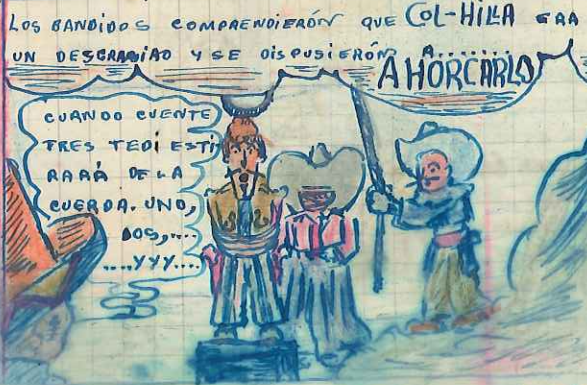 LOS BANDIDOS COMPRENDIERÓN QUE COL-HILLA ERA
UN DESGRASIAO Y SE DISPUSIERÓN A........
AHORCARLO
CUANDO CUENTE
TRES TEDÍ ESTI
RARÁ DE LA
CUERDA. UNO,
DOS,....
....YYY....